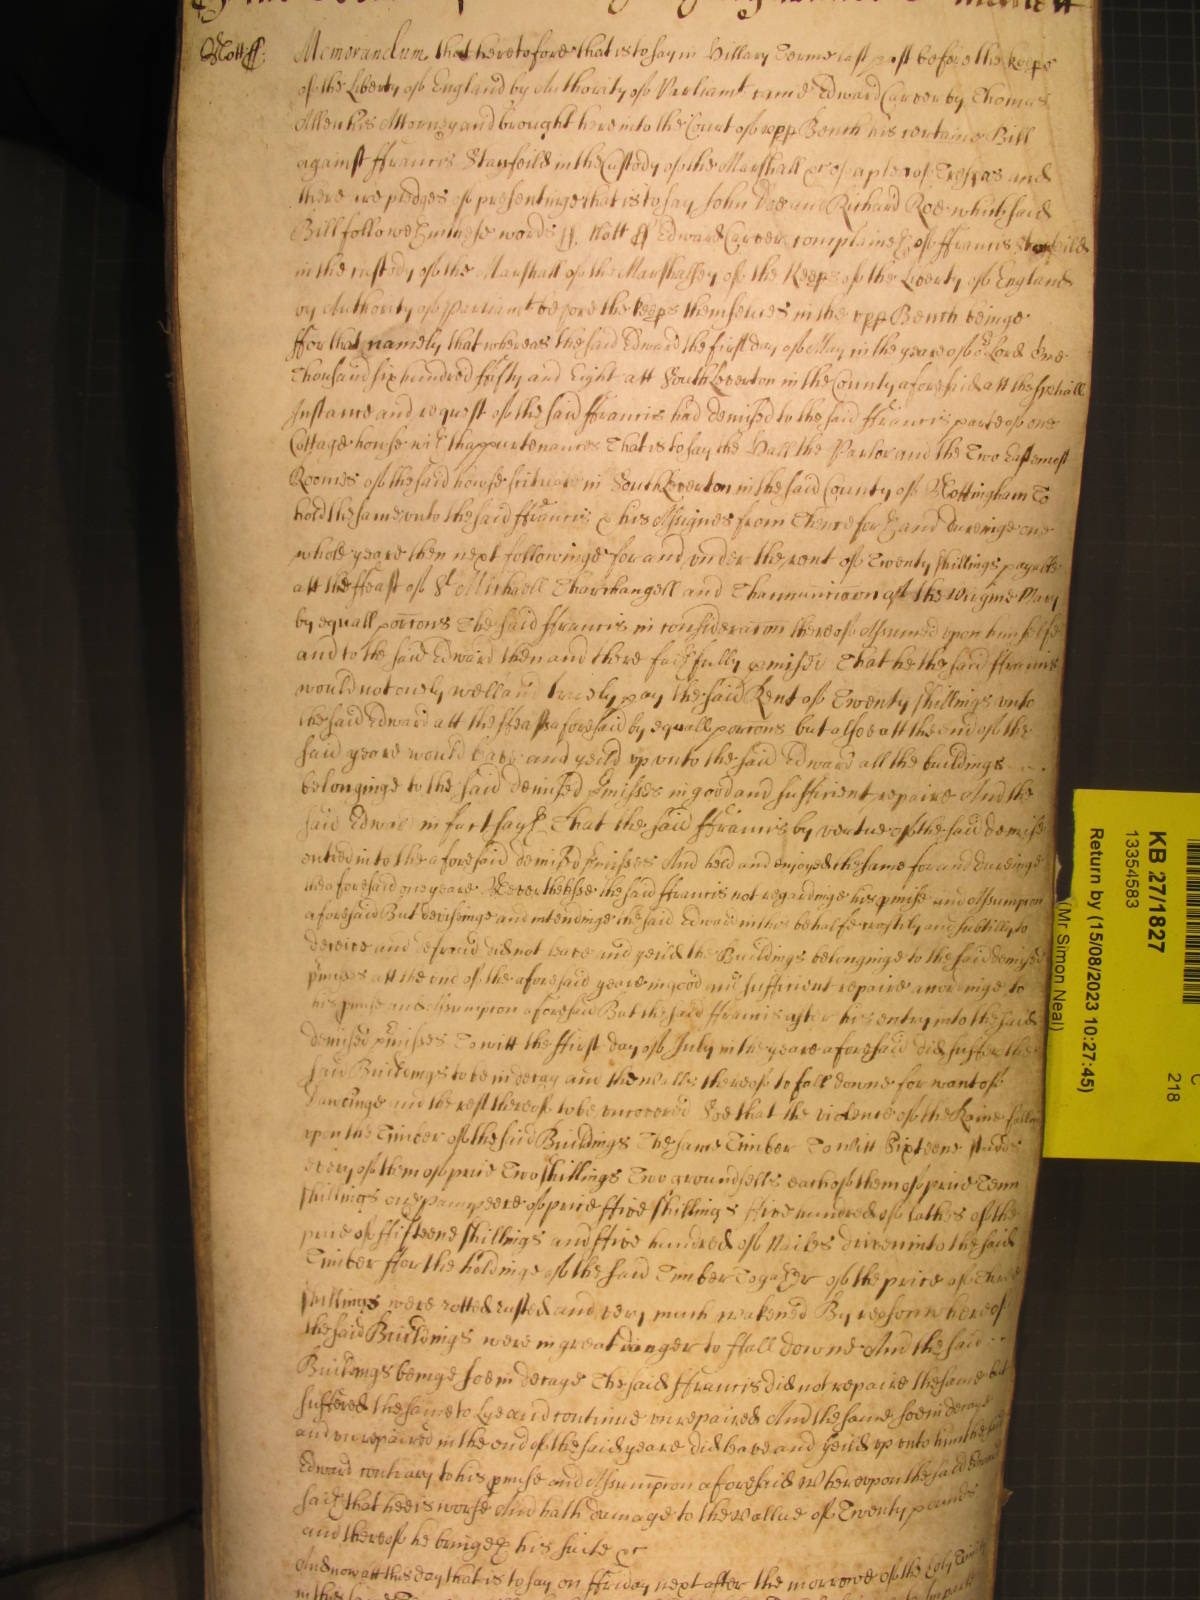 Nott ss:
Memorandum that heretofore that is to say in Hillary Terme last past before the keeps
of the Liberty of England by Authority of Parliamt came Edward Carver by Thomas
Allen his Attorney and brought here into the Court of vpp Bench his certaine Bill
against ffrancis Stanfeild in the Custody of the Marshall &c of a plea of Trespas and
there are pledges of presentinge that is to say John Doe and Richard Roe which said
Bill followeth in these words ss. Nott ss Edward Carver complaineth of ffrancis Stanfeild
in the custody of the Marshall of the Marshalsey of the Keeps of the Liberty of England
by Authority of Parliamt before the keeps themselues in the vpp Bench beinge
ffor that namely that whereas the said Edward the first day of May in the yeare of or Lord One
Thousand six hundred ffifty and Eight att South Leverton in the County aforesaid att the speciall
Instance and request of the said ffrancis had demised to the said ffrancis parte of one
Cottage howse with thappurtenances That is to say the Hall the Parlor and the Two Eastmost
Roomes of the said howse scituate in South Leverton in the said County of Nottingham To
hold the same vnto the said ffrancis & his Assignes from thenceforth and dureinge one
whole yeare then next followinge for and vnder the rent of Twenty shillings payable
att the ffeast of St Michaell Tharchangell and Thannunciacon of the Virgine Mary
by equall porcons The said ffrancis in consideracon thereof Assumed vpon himselfe
and to the said Edward then and there faithfully pmised That he the said ffrancis
would not onely well and truely pay the said Rent of Twenty shillings vnto
the said Edward att the ffeasts aforesaid by equall porcons but alsoe att the end of the
said yeare would leave and yeild vp vnto the said Edward all the buildings
belonginge to the said demised pmisses in good and sufficient repaire And the
said Edward in fact saith That the said ffrancis by vertue of the said demise
entred into the aforesaid demised pmisses And held and enjoyed the same for and dureinge
the aforesaid one yeare Neverthelesse the said ffrancis not regardinge his pmise and Assumpcon
aforesaid But deviseinge and intendinge the said Edward in this behalfe craftily and subtilly to
deceive and defraud did not leave and yeild the Buildings belonginge to the said demised
pmisses att the end of the aforesaid yeare in good and sufficient repaire accordinge to
his pmise and Assumpcon aforesaid But the said ffrancis after his entry into the said
demised pmisses To witt the ffirst day of July in the yeare aforesaid did suffer the
said Buildings to be in decay and the walls thereof to fall downe for want of
dawbinge and the rest thereof to be vncovered Soe that the violence of the Raine falling
vpon the Timber of the said Buildings The same Timber To witt Sixteene studds
every of them of price Two shillings Two groundsells each of them of price Tenn
shillings one pann peece of price ffive shillings ffive hundred of lathes of the
price of ffifteene shillings and ffive hundred of Nailes driven into the said
Timber ffor the holdinge of the said Timber Togather of the price of Three
shillings were rotted rusted and very much weakened By reason whereof
the said Buildings were in great danger to ffall downe And the said
Buildings beinge soe in decaye The said ffrancis did not repaire the same but
suffered the same to Lye and continue vnrepaired And the same soe in decaye
and vnrepaired in the end of the said yeare did leave and yeild vp vnto him the said
Edward contrary to his pmise and Assumpcon aforesaid Wherevpon the said Edward
saith that hee is worse And hath damage to the vallue of Twenty pounds
and thereof he bringeth his suite &c
And now att this day that is to say on ffriday next after the morrowe of the Holy Trinity
KB 27/1827
13354583
Return by (15/08/2023 10:27:45)
(Mr Simon Neal)
218